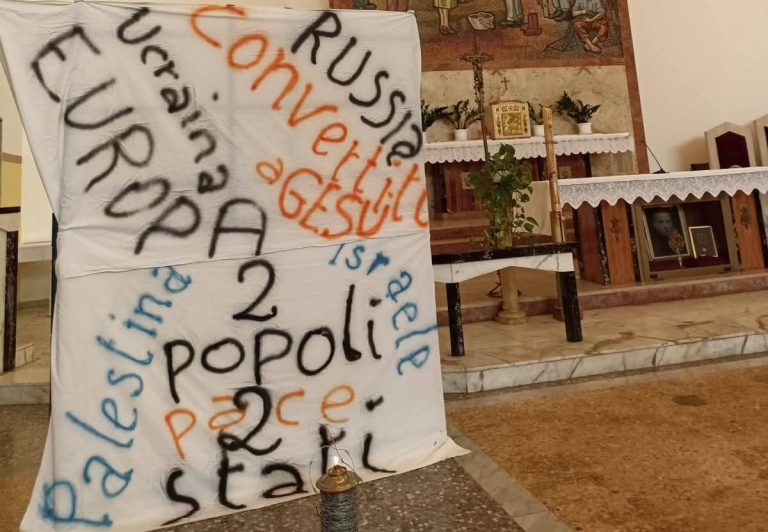 RUSSIA
Ucraina
EUROPA
Convertiti
a GESÙ
Palestina
Israele
2
popoli
pace
2
stati